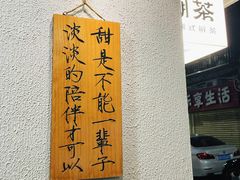 甜是不能一辈子
淡淡的陪伴才可以
甜茶
享生活